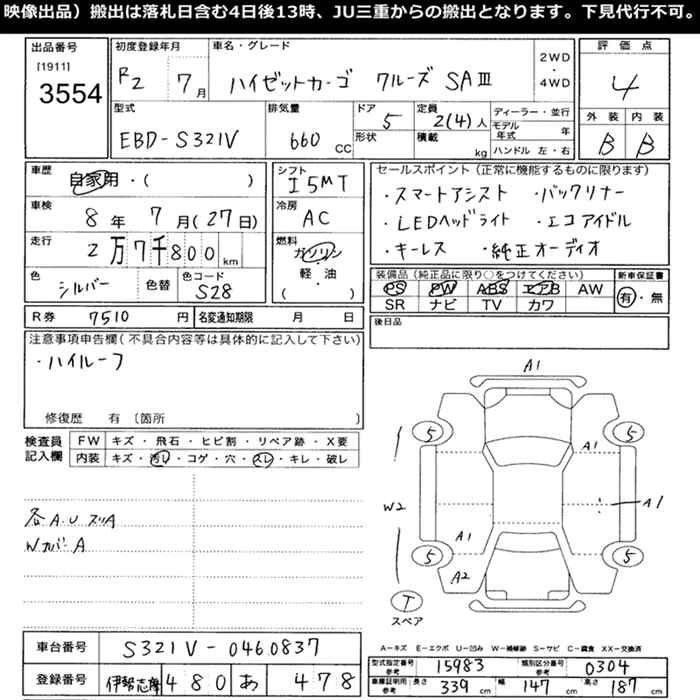 映像出品）搬出は落札日含む4日後13時、JU三重からの搬出となります。下見代行不可。
出品番号 [1911] 3554
初度登録年月 R2 7月
車名・グレード ハイゼットカーゴ クルーズ SAⅢ
2WD・4WD
評価点 4
外装 B 内装 B
型式 EBD-S321V
排気量 660 CC
ドア 5
形状
定員 2(4)人
積載 kg
ディーラー・並行
モデル年式 年
ハンドル 左・右
車歴 自家用・( )
車検 8年 7月(27日)
走行 2万7千800km
色 シルバー 色替
色コード S28
シフト I5MT
冷房 AC
燃料 ガソリン・軽・油 ( )
セールスポイント（正常に機能するものに限ります）
・スマートアシスト ・バックソナー
・LEDヘッドライト ・エコアイドル
・キーレス ・純正オーディオ
装備品（純正品に限り○をつけてください） 新車保証書
PS PW ABS エアB AW 有・無
SR ナビ TV カワ
R券 7510円 名変通知期限 月 日
後日品
注意事項申告欄（不具合内容等は具体的に記入して下さい）
・ハイルーフ
修復歴 有 〔箇所 〕
検査員記入欄
FW キズ・飛石・ヒビ割・リペア跡・X要
内装 キズ・汚レ・コゲ・穴・スレ・キレ・破レ
各A.U スリA
WカバーA
A1
5 5
A1
W2 A1
A1
5 5
A2
T
スペア
車台番号 S321V-0460837
登録番号 伊勢志摩 480 あ 478
A-キズ E-エクボ U-凹み W-補修跡 S-サビ C-腐食 XX-交換済
型式指定番号 参考 15983 類別区分番号 参考 0304
車庫証明用 参考 長さ 339 cm 幅 147 cm 高さ 187 cm